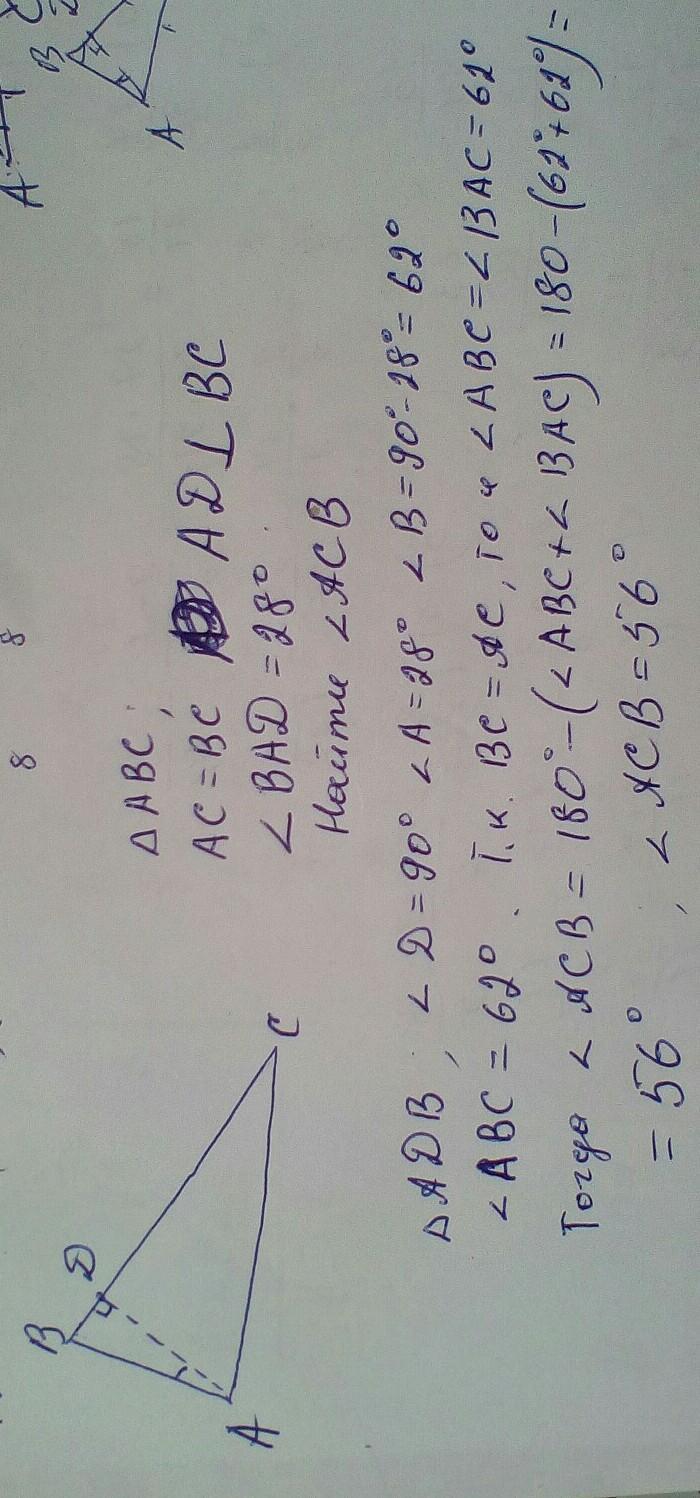 A
B
A
8 8
B
D
A
C
Δ ABC;
AC = BC AD ⊥ BC
∠BAD = 28°.
Найти ∠ACB
Δ ADB, ∠D = 90° ∠A = 28° ∠B = 90° - 28° = 62°
∠ABC = 62°. Т.к. BC = AC, то и ∠ABC = ∠BAC = 62°
Тогда ∠ACB = 180° - (∠ABC + ∠BAC) = 180 - (62° + 62°) =
= 56°, ∠ACB = 56°